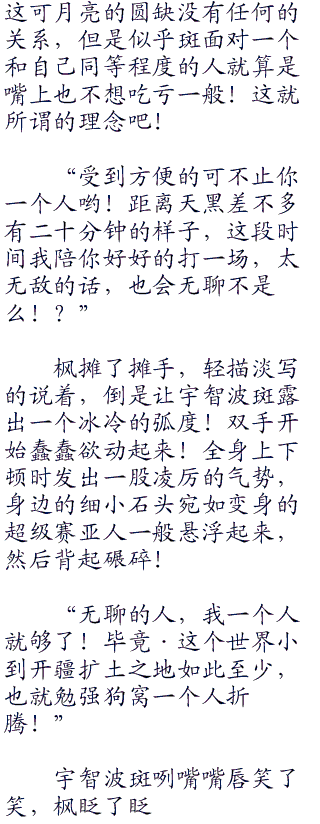 这可月亮的圆缺没有任何的
关系，但是似乎斑面对一个
和自己同等程度的人就算是
嘴上也不想吃亏一般！这就
所谓的理念吧！
“受到方便的可不止你
一个人哟！距离天黑差不多
有二十分钟的样子，这段时
间我陪你好好的打一场，太
无敌的话，也会无聊不是
么！？”
枫摊了摊手，轻描淡写
的说着，倒是让宇智波斑露
出一个冰冷的弧度！双手开
始蠢蠢欲动起来！全身上下
顿时发出一股凌厉的气势，
身边的细小石头宛如变身的
超级赛亚人一般悬浮起来，
然后背起碾碎！
“无聊的人，我一个人
就够了！毕竟·这个世界小
到开疆扩土之地如此至少，
也就勉强狗窝一个人折
腾！”
宇智波斑咧嘴嘴唇笑了
笑，枫眨了眨